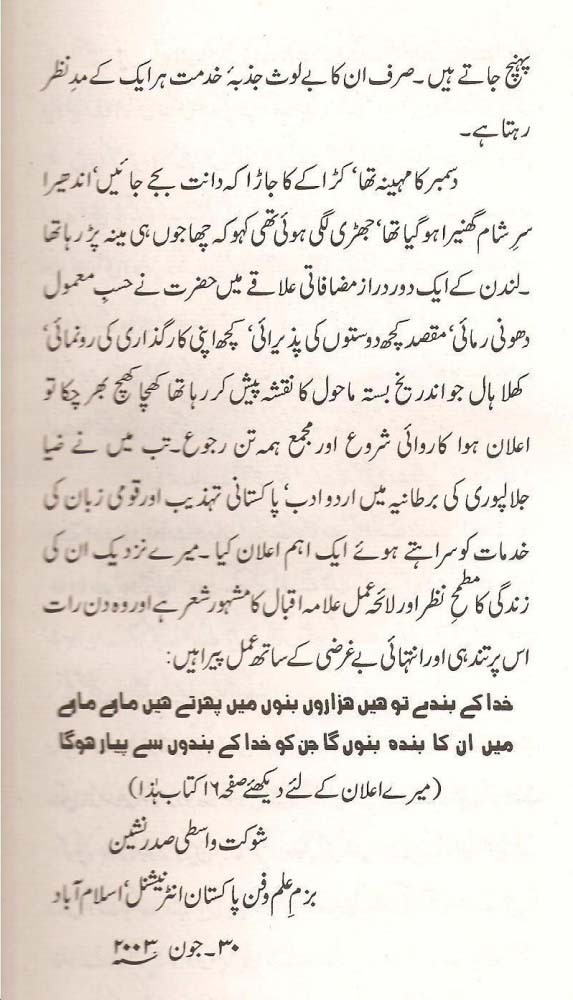 پہنچ جاتے ہیں۔ صرف ان کا بے لوث جذبۂ خدمت ہر ایک کے مدِ نظر
رہتا ہے۔
دسمبر کا مہینہ تھا، کڑاکے کا جاڑا کہ دانت بجے جائیں، اندھیرا
سرِ شام گھنیرا ہو گیا تھا، جھڑی لگی ہوئی تھی کہو کہ چھاجوں ہی مینہ پڑ رہا تھا
۔ لندن کے ایک دور دراز مضافاتی علاقے میں حضرت نے حسبِ معمول
دھونی رمائی، مقصد کچھ دوستوں کی پذیرائی، کچھ اپنی کارگذاری کی رونمائی،
کھلا ہال جو اندر یخ بستہ ماحول کا نقشہ پیش کر رہا تھا کھچا کھچ بھر چکا تو
اعلان ہوا کاروائی شروع اور مجمع ہمہ تن رجوع۔ تب میں نے ضیا
جلالپوری کی برطانیہ میں اردو ادب، پاکستانی تہذیب اور قومی زبان کی
خدمات کو سراہتے ہوئے ایک اہم اعلان کیا۔ میرے نزدیک ان کی
زندگی کا مطمحِ نظر اور لائحہ عمل علامہ اقبال کا مشہور شعر ہے اور وہ دن رات
اس پر تندہی اور انتہائی بے غرضی کے ساتھ عمل پیرا ہیں:
خدا کے بندے تو ہیں ہزاروں بنوں میں پھرتے ہیں مارے مارے
میں ان کا بندہ بنوں گا جن کو خدا کے بندوں سے پیار ہوگا
(میرے اعلان کے لئے دیکھئے صفحہ ۱۶ کتاب ہٰذا)
شوکت واسطی صدر نشین
بزمِ علم و فن پاکستان انٹرنیشنل، اسلام آباد
۳۰۔ جون ۲۰۰۳؁